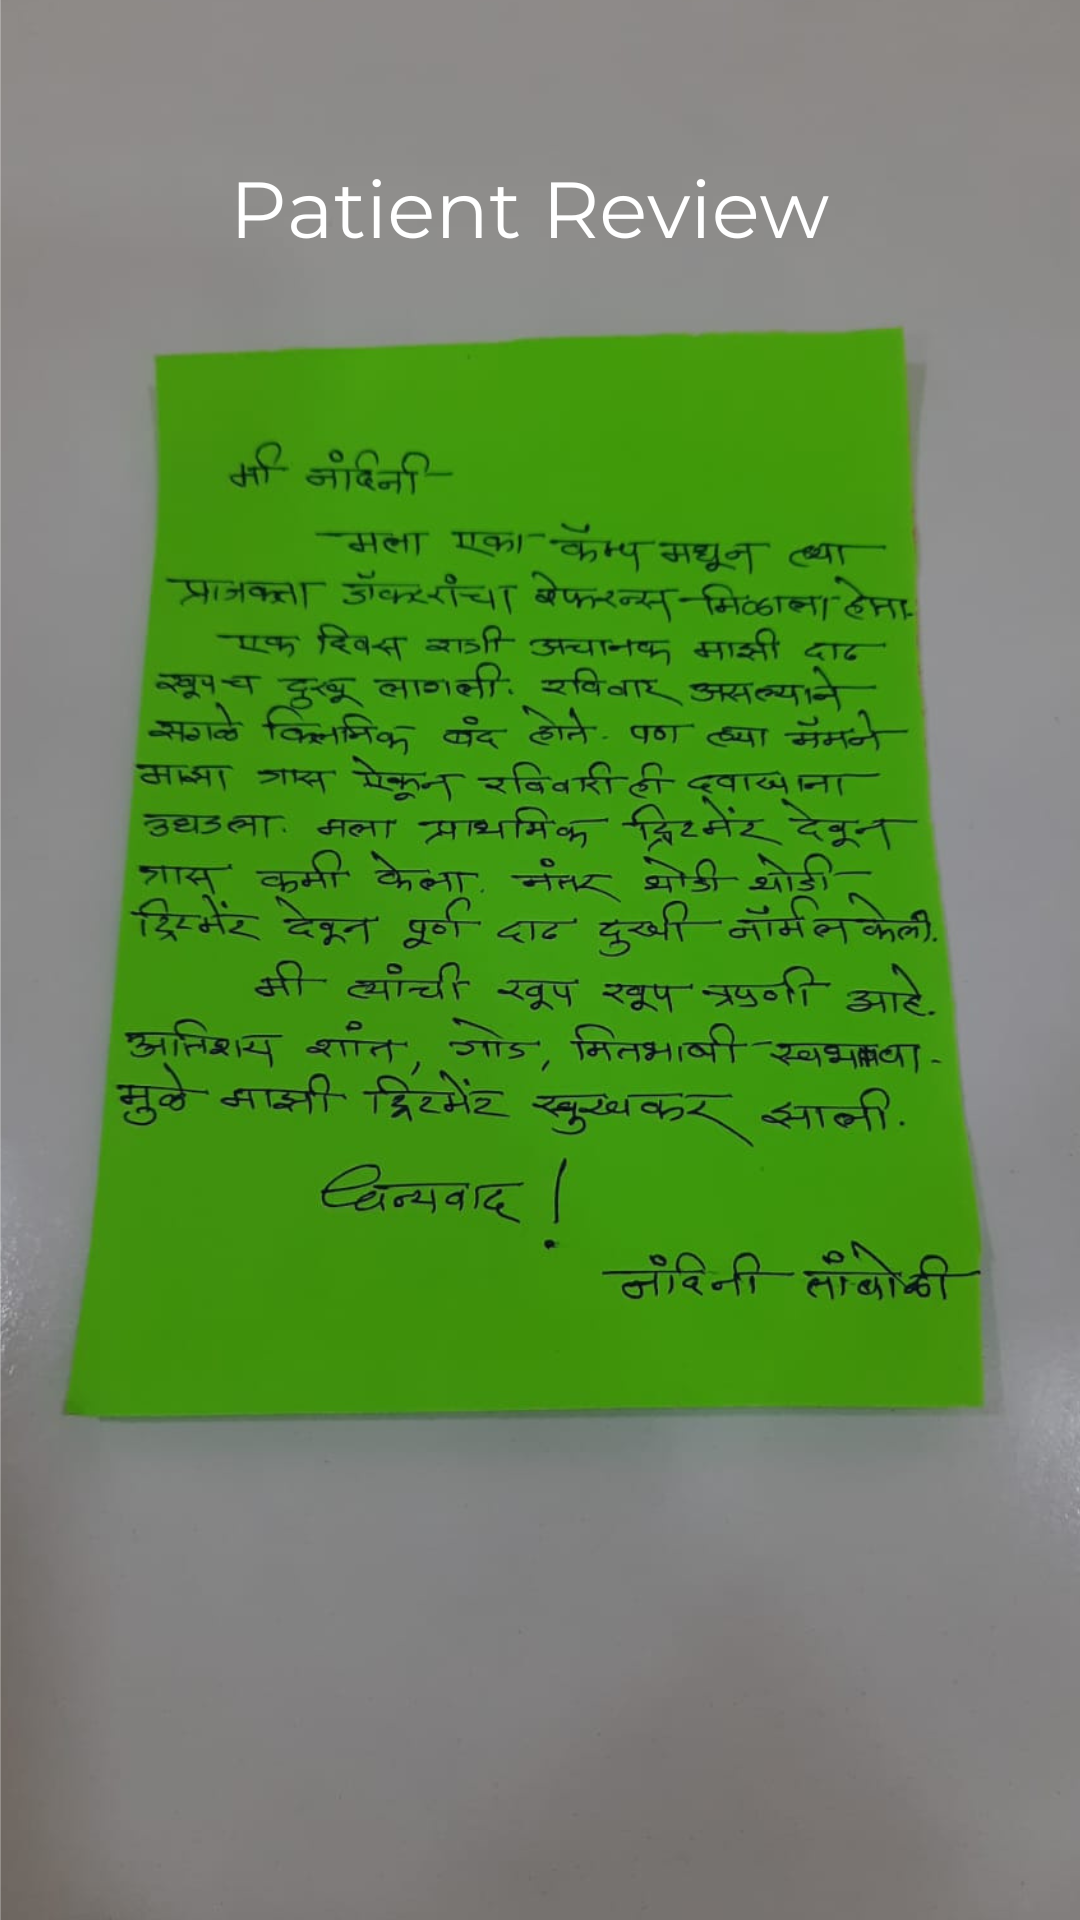 Patient Review
मी नंदिनी
मला एका कॅम्प मधून त्या
प्राजक्ता डॉक्टरांचा रेफरन्स मिळाला होता.
एक दिवस रात्री अचानक माझी दाढ
खूपच दुखू लागली. रविवार असल्याने
सगळे क्लिनिक बंद होते. पण त्या मॅमने
माझा त्रास ऐकून रविवारी ही दवाखाना
उघडला. मला प्राथमिक ट्रिटमेंट देवून
त्रास कमी केला. नंतर थोडी थोडी
ट्रिटमेंट देवून पूर्ण दाढ दुखी नॉर्मल केली.
मी त्यांची खूप खूप ऋणी आहे.
अतिशय शांत, गोड, मितभाषी स्वभावा-
मुळे माझी ट्रिटमेंट सुखकर झाली.
धन्यवाद !
नंदिनी तांबोळी